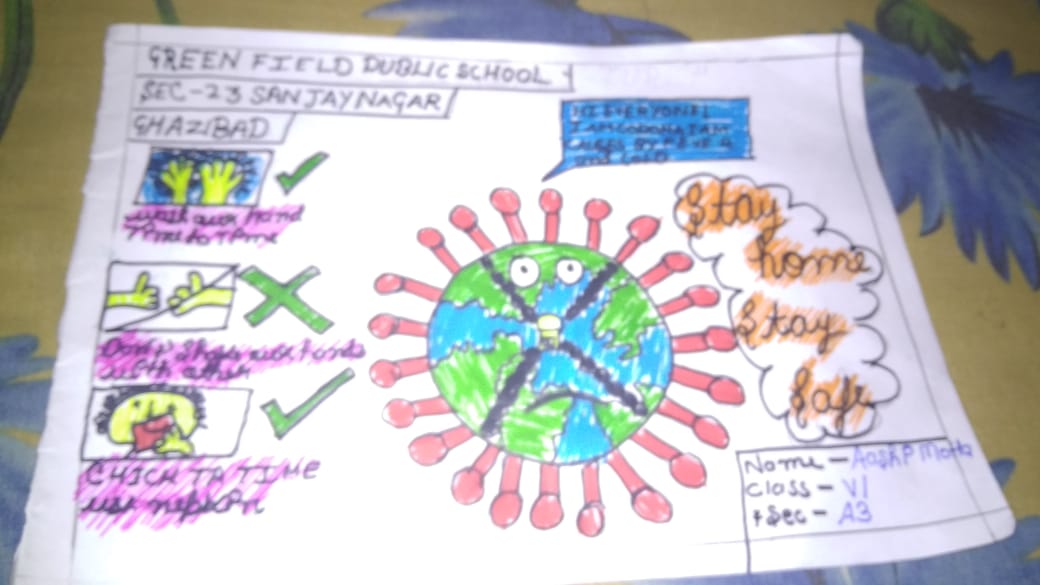 GREEN FIELD PUBLIC SCHOOL
SEC-23 SANJAYNAGAR
GHAZIBAD
HI EVERYONE!
I AM CORONA I AM
and COLD
wash our hand
Time to Time
Don't Shake our hands
with other
CHICK TA TIME
use nepkon
Stay
home
Stay
Safe
Name -
Class - VI
+ Sec - A3